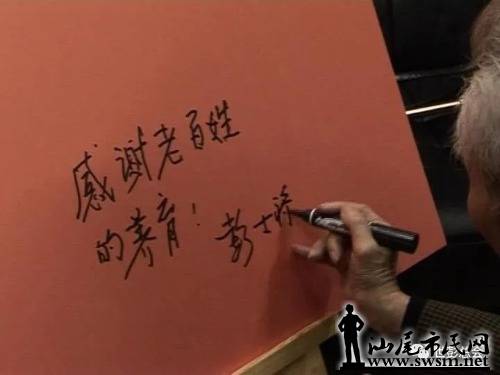 感谢老百姓
的养育！彭士禄
汕尾市民网
www.swsm.net